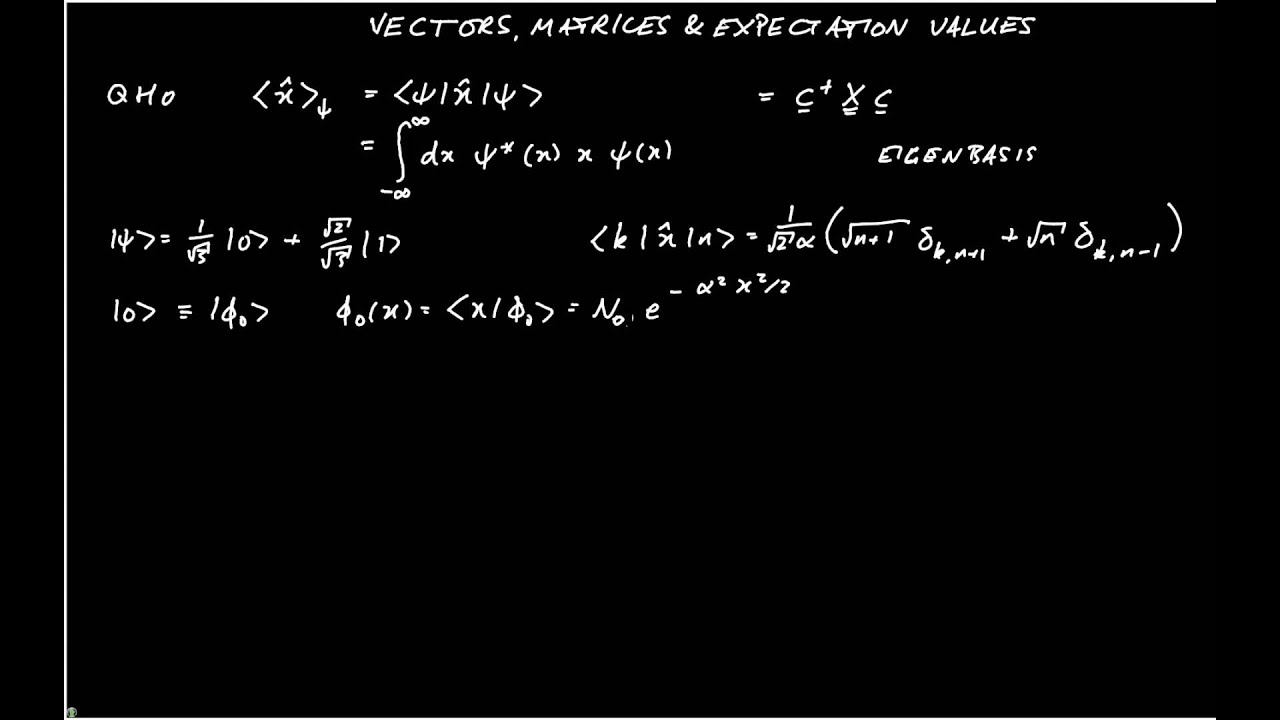 VECTORS, MATRICES & EXPECTATION VALUES
QHO ⟨x̂⟩_ψ = ⟨ψ|x̂|ψ⟩ = c† X c
= ∫_{-∞}^{∞} dx ψ*(x) x ψ(x) EIGENBASIS
|ψ⟩ = 1/√3 |0⟩ + √2/√3 |1⟩ ⟨k|x̂|n⟩ = 1/(√2 α) (√(n+1) δ_{k,n+1} + √n δ_{k,n-1})
|0⟩ ≡ |ϕ₀⟩ ϕ₀(x) = ⟨x|ϕ₀⟩ = N₀ e^{-α² x²/2}